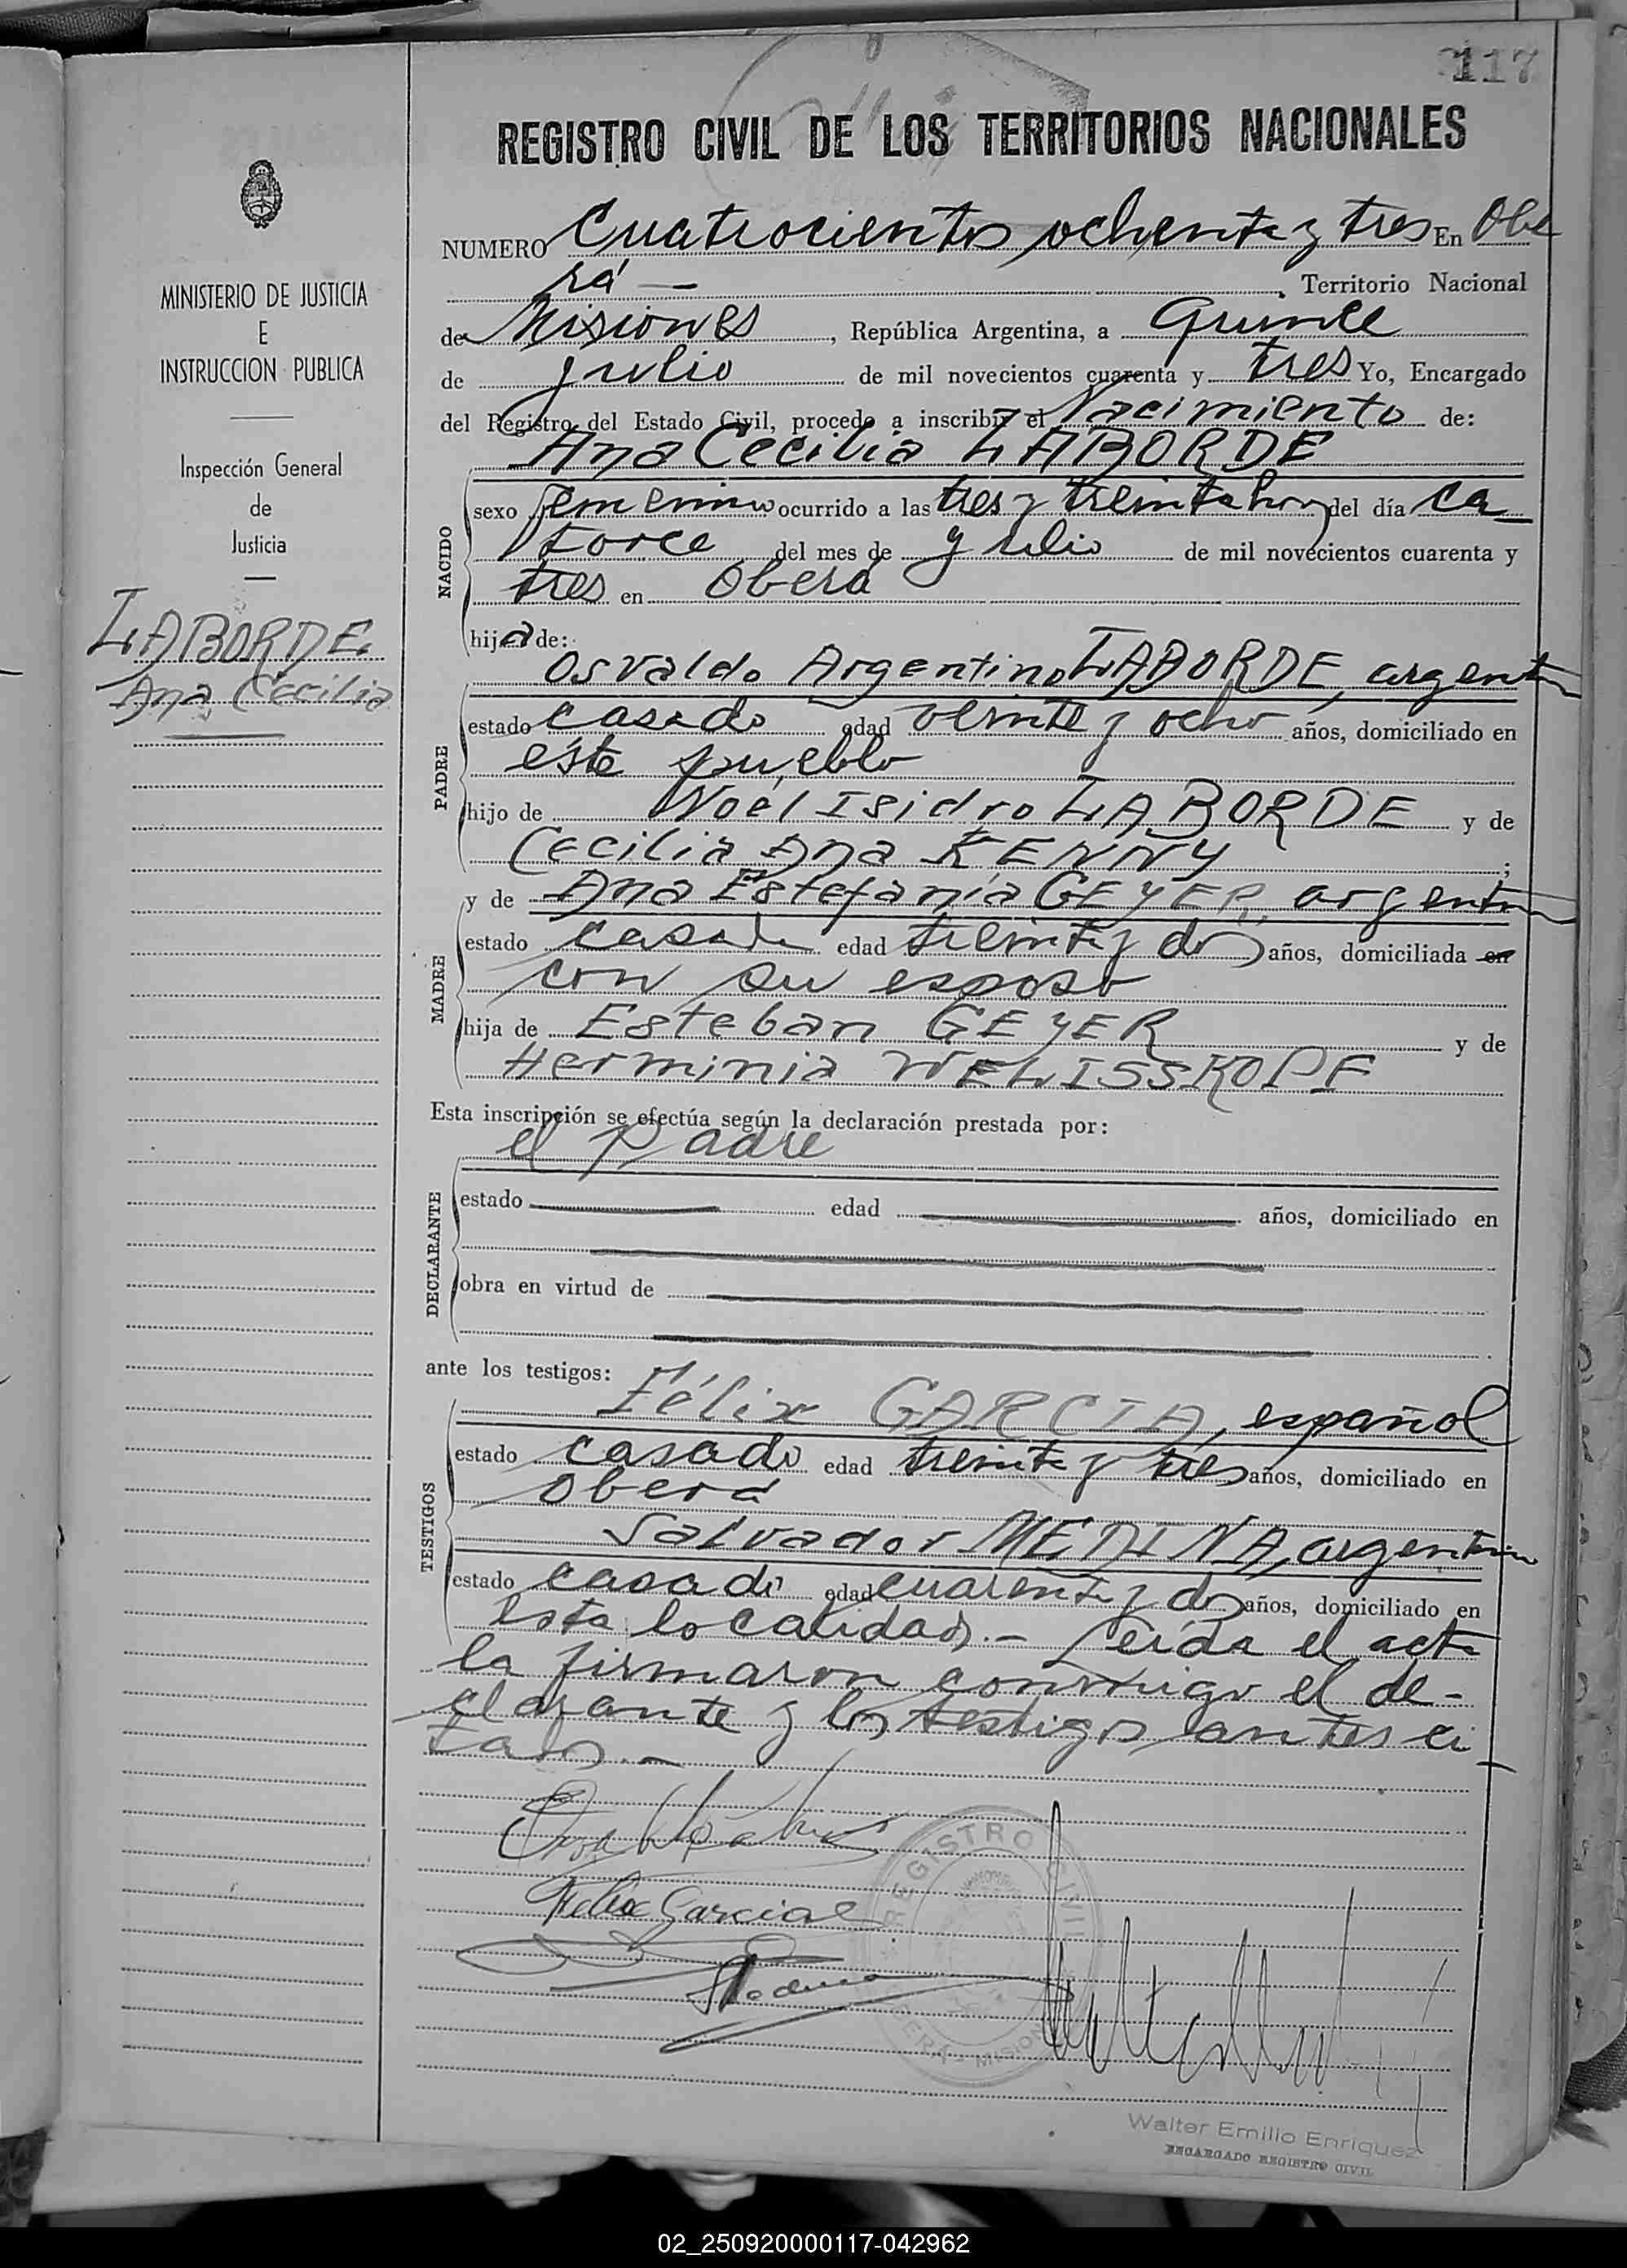 117
REGISTRO CIVIL DE LOS TERRITORIOS NACIONALES
MINISTERIO DE JUSTICIA
E
INSTRUCCION PUBLICA
Inspección General
de
Justicia
LABORDE
Ana Cecilia
NUMERO Cuatrocientos ochenta y tres En Obe
rá — Territorio Nacional
de Misiones, República Argentina, a Quince
de julio de mil novecientos cuarenta y tres Yo, Encargado
del Registro del Estado Civil, procedo a inscribir el Nacimiento de:
Ana Cecilia LABORDE
NACIDO
sexo femenino ocurrido a las tres y treinta horas del día ca-
torce del mes de julio de mil novecientos cuarenta y
tres en Oberá
hija de:
Osvaldo Argentino LABORDE, argentino
PADRE
estado casado edad veinte y ocho años, domiciliado en
éste pueblo
hijo de Noél Isidro LABORDE y de
Cecilia Ana KENNY;
y de Ana Estefanía GEYER, argentina
MADRE
estado casada edad treinta y dos años, domiciliada en
con su esposo
hija de Esteban GEYER y de
Herminia WELISSKOPF
Esta inscripción se efectúa según la declaración prestada por:
el padre
DECLARANTE
estado edad años, domiciliado en
obra en virtud de
ante los testigos:
Félix GARCIA, español
TESTIGOS
estado casado edad treinta y tres años, domiciliado en
Oberá
Salvador MEDINA, argentino
estado casado edad cuarenta y dos años, domiciliado en
esta localidad.- Leída el acta
la firmaron conmigo el de-
clarante y los testigos antes ci-
tados.-
Felix Garcia
REGISTRO CIVIL
OBERÁ - MISIONES
Walter Emilio Enriquez
ENCARGADO REGISTRO CIVIL
02_250920000117-042962